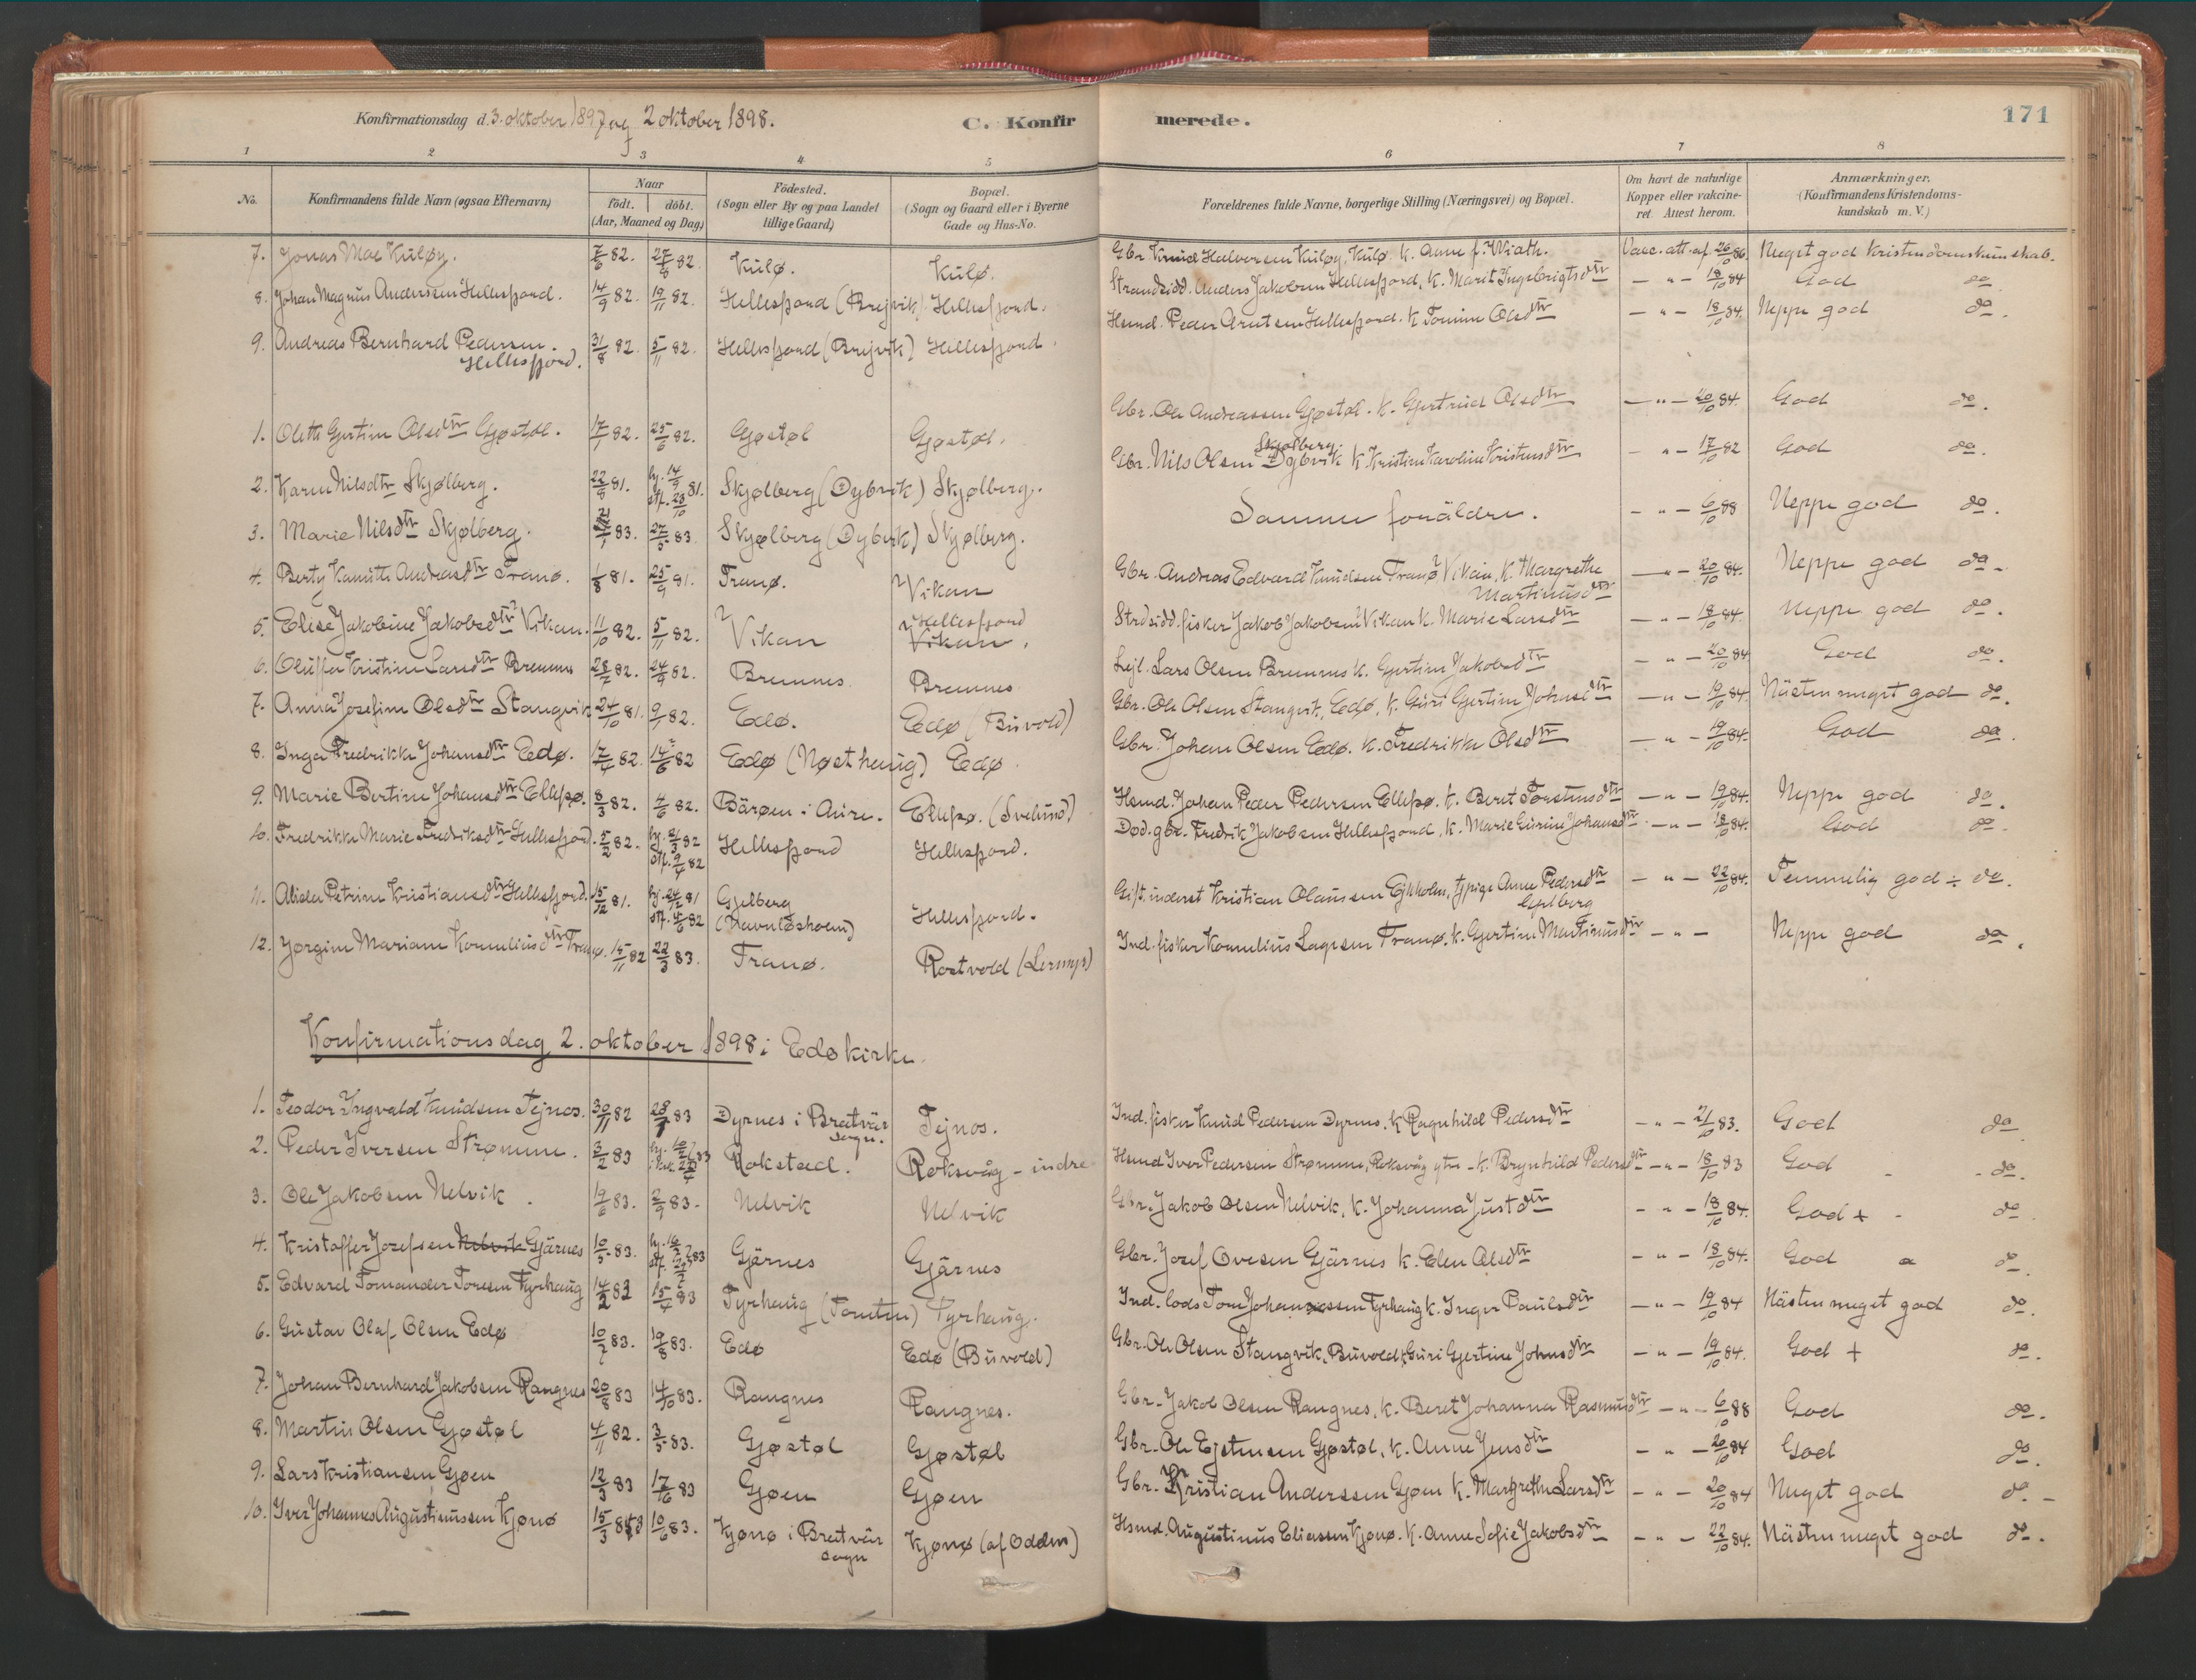 Konfirmationsdag d. 3. oktober 1897 og 2 oktober 1898.
C. Konfirmerede.
171
1 2 3 4 5 6 7 8
No.
Konfirmandens fulde Navn (ogsaa Efternavn)
Naar
födt. döbt.
(Aar, Maaned og Dag)
Födested.
(Sogn eller By og paa Landet
tillige Gaard)
Bopæl.
(Sogn og Gaard eller i Byerne
Gade og Hus-No.
Forældrenes fulde Navne, borgerlige Stilling (Næringsvei) og Bopæl.
Om havt de naturlige
Kopper eller vakcine-
ret. Attest herom.
Anmærkninger.
(Konfirmandens Kristendoms-
kundskab m. V.)
7. Jonas Moe Kuløy. 7/6 82. 27/8 82. Kulø. Kulø. Gbr. Knud Halvorsen Kuløy, Kulø. K. Anne f. Wiath. Vacc. att. af 26/10 86. Meget god Kristendomskundskab.
8. Johan Magnus Anderssen Hellesfjord. 14/9 82. 19/11 82. Hellesfjord (Brejvik). Hellesfjord. Strandsidd. Anders Jakobsen Hellesfjord, K. Marit Ingebrigtsdtr — " — 18/10 84 God do.
9. Andreas Bernhard Pedersen Hellesfjord. 31/8 82. 5/11 82. Hellesfjord (Brejvik) Hellesfjord. Hsmd. Peder Arntsen Hellesfjord. K. Tomine Olsdtr — " — 18/10 84. Neppe god do.
1. Olette Gjertine Olsdtr Gjøstøl. 17/1 82. 25/6 82. Gjøstøl Gjøstøl. Gbr. Ole Andreassen Gjøstøl. K. Gjertrud Olsdtr — " — 20/10 84. God do.
2. Karen Nilsdtr Skjølberg. 22/8 81. hj. 14/9 stf. 23/10 81. Skjølberg (Dybvik) Skjølberg. Gbr. Nils Olsen Dybvik Skjølberg. K. Kristine Karoline Kristensdtr — " — 17/10 82 God do.
3. Marie Nilsdtr Skjølberg. 83. 27/5 83. Skjølberg (Dybvik) Skjølberg. Samme forældre. — " — 6/10 88 Neppe god do.
4. Berty Kanutte Andreasdtr Tranø. 1/8 81. 25/9 81. Tranø. Vikan Gbr. Andreas Edvard Knudsen Tranø Vikan, K. Margrethe Martinusdtr — " — 20/10 84. Neppe god do.
5. Elise Jakobine Jakobsdtr Vikan. 11/10 82. 5/11 82. Vikan Hellesfjord Vikan. Strdsidd. fisker Jakob Jakobsen Vikan K. Marie Larsdtr — " — 18/10 84. Neppe god do.
6. Oluffa Kristine Larsdtr Bremnes 28/7 82. 24/9 82. Bremnes. Bremnes. Lejl. Lars Olsen Bremnes K. Gjertine Jakobsdtr — " — 20/10 84 God do.
7. Anna Josefine Olsdtr Stangvik 24/10 81. 9/1 82. Edø. Edø (Buvold) Gbr. Ole Olsen Stangvik, Edø, K. Guri Gjertine Johnsdtr — " — 19/10 84. Nästen meget god do.
8. Inga Fredrikke Johansdtr Edø. 17/4 82. 14/6 82 Edø (Nøsthaug) Edø Gbr. Johan Olsen Edø. K. Fredrikke Olsdtr — " — 19/10 84. God do.
9. Marie Bertine Johansdtr Ellefsø. 8/3 82. 4/6 82. Bärøen i Aure. Ellefsø. (Svelund) Hsmd. Johan Peder Pedersen Ellefsø. K. Beret Torstensdtr — " — 19/10 84. Neppe god do.
10. Fredrikke Marie Fredriksdtr Hellesfjord. 5/2 82. hj. 21/3 82 stf. 9/4 82 Hellesfjord Hellesfjord. Død. gbr. Fredrik Jakobsen Hellesfjord, K. Marie Gurine Johansdtr — " — 18/10 84. God do.
11. Alida Petrine Kristiansdtr Hellesfjord. 15/12 81. hj. 24/12 81 stf. 4/6 82 Gjelberg (Havnløsholm) Hellesfjord. Gift. inderst Kristian Olaussen Ejkholm, tjpige Anne Pedersdtr Gjelberg — " — 22/10 84. Temmelig god ÷ do.
12. Jørgine Mariane Korneliusdtr Tranø. 15/11 82 22/3 83. Tranø. Rostvold Ind. fisker Kornelius Tranø. K. Gjertine Martinusdtr — " — Neppe god do.
Konfirmationsdag 2. oktober 1898 i Edø kirke.
1. Teodor Ingvald Knudsen Tejnos. 30/11 82 28/1 83 Dyrnes i Bratvär sogn. Tejnos. Ind. fisker Knud Pedersen Dyrnes, K. Ragnhild Pedersdtr — " — 21/10 83. God do
2. Peder Iversen Strømme. 3/2 83 83 Rokstad. Roksvåg - indre Hsmd Iver Pedersen Strømme, Roksvåg ytre - K. Brynhild Pedersdtr — " — 18/10 83 God do.
3. Ole Jakobsen Nelvik. 19/6 83. 2/9 83. Nelvik Nelvik Gbr. Jakob Olsen Nelvik, K. Johanna Justdtr — " — 18/10 84. God + do
4. Kristoffer Josefsen Nelvik Gjärnes 10/5 83. 83 Gjärnes Gjärnes Gbr. Josef Ovesen Gjärnes K. Elen Olsdtr — " — 18/10 84. God do.
5. Edvard Tomander Toresen Tyrhaug 14/2 83 15/4 83 Tyrhaug (Tomten) Tyrhaug. Ind. lods Tom Johanssen Tyrhaug K. Inger Paulsdtr — " — 19/10 84 Nästen meget god do.
6. Gustav Olaf Olsen Edø 10/7 83. 19/8 83. Edø Edø (Buvold) Gbr. Ole Olsen Stangvik, Buvold, K. Guri Gjertine Johnsdtr — " — 19/10 84. God + do.
7. Johan Bernhard Jakobsen Rangnes 20/8 83 14/10 83. Rangnes Rangnes. Gbr. Jakob Olsen Rangnes, K. Beret Johanna Rasmusdtr — " — 6/10 88 God do.
8. Martin Olsen Gjøstøl 4/11 82. 3/5 83. Gjøstøl Gjøstøl Gbr. Ole Ejstensen Gjøstøl, K. Anne Jensdtr — " — 20/10 84 God do.
9. Lars Kristiansen Gjøen 12/3 83 17/6 83 Gjøen Gjøen Gbr. Kristian Anderssen Gjøen K. Margrethe Larsdtr — " — 20/10 84 Meget god do. -
10. Iver Johannes Augustinussen Kjønø 15/3 83 10/6 83. Kjønø i Bratvär sogn Kjønø (af Odden) Hsmd. Augustinus Eliassen Kjønø. K. Anne Sofie Jakobsdtr — " — 22/10 84. Nästen meget god do.